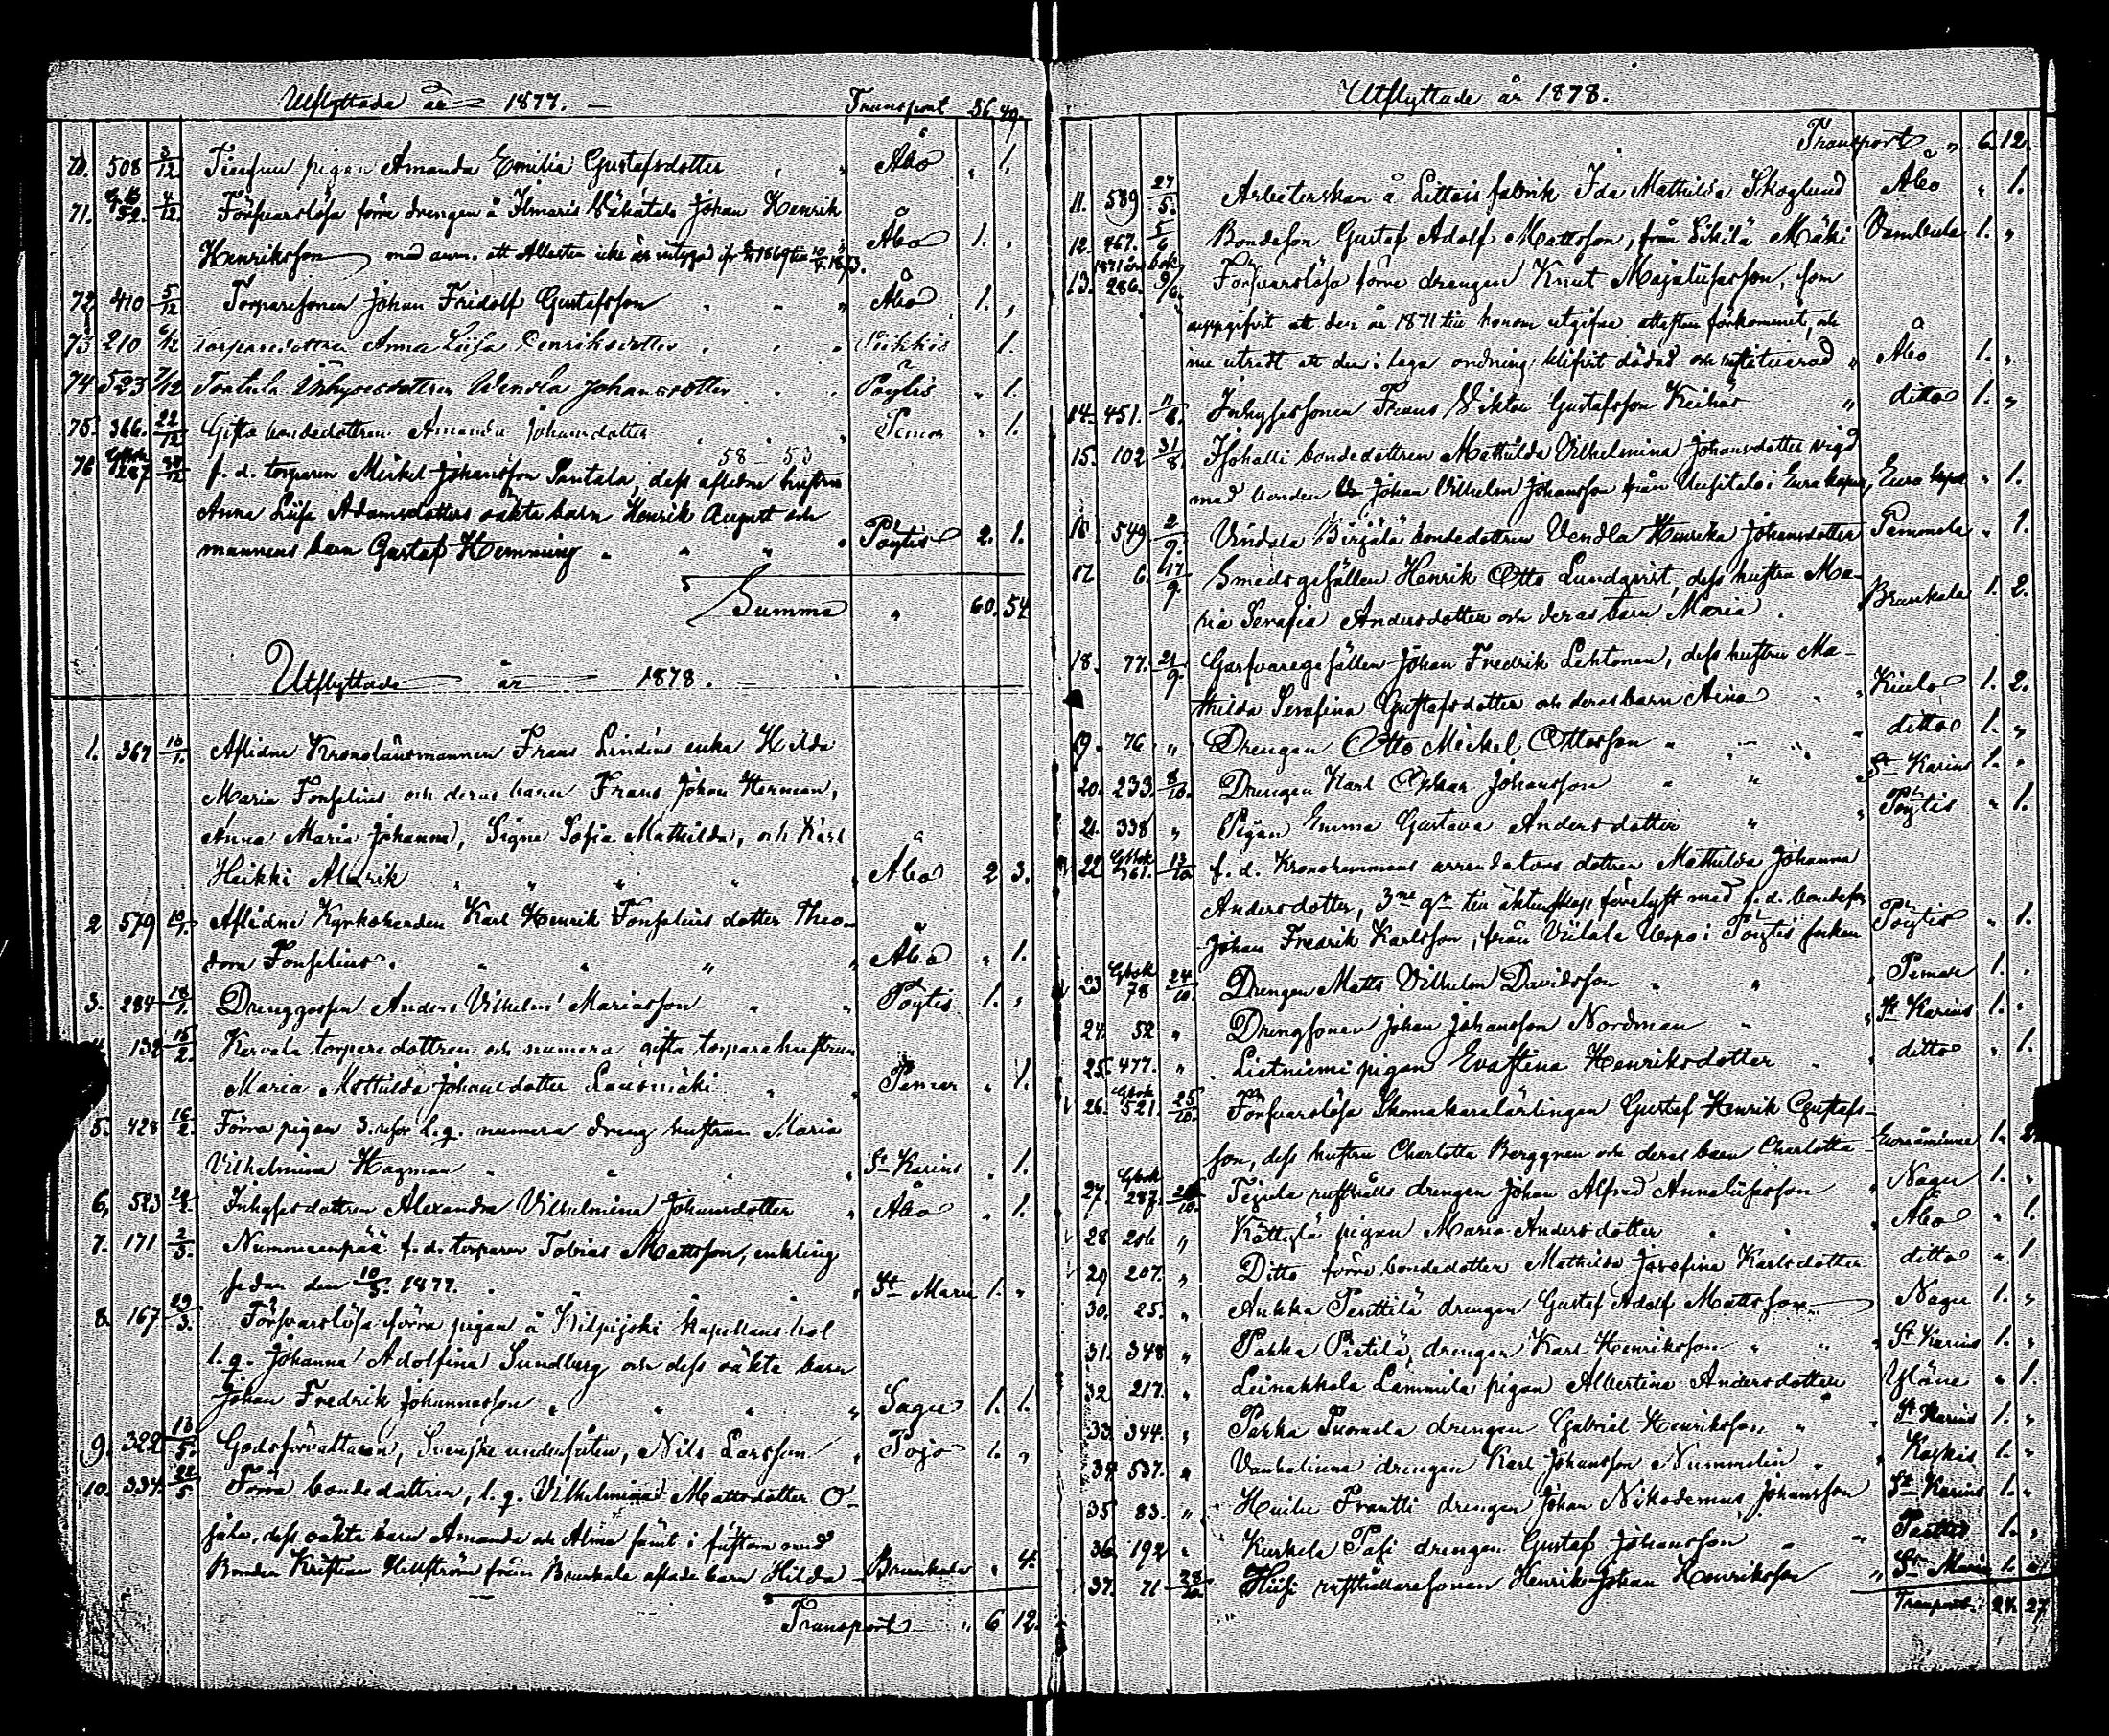 Utflyttade år 1877. Transport 56. 49.
70. 508 3/12 pigan Amanda Emilia Gustafsdotter Åbo " 1.
71. 52. 4/12 Förfvarslösa förra drengen å Ilmaris Johan Henrik
Henriksson med anm. att icke är Åbo 1. "
72. 410 5/12 Torparesonen Johan Fridolf Gustafsson Åbo 1. "
73 210 6/12 Torparedottren Anna Lisa Henriksdotter Piikkis 1.
74 523 7/12 Inhysesdottren Wendla Johansdotter Pöytis " 1.
75. 366. 22/12 Gifta bondedottren Amanda Johansdotter Pemar " 1.
58 53
76 Gbok 287 f. d. torparen Mickel Johansson Santala, dess aflidna hustru
Anna Lisa Adamsdotters oäkta barn Henrik August och
mannens barn Gustaf Hemming Pöytis 2. 1.
Summa " 60. 54
Utflyttade år 1878.
1. 367 Aflidne Kronolänsmannen Frans Lindéns enka Hilda
Maria Fonselius och deras barn Frans Johan Herman,
Anna Maria Johanna, Signe Sofia Mathilda, och Karl
Heikki Alarik Åbo 2 3.
2 579 Aflidne Kyrkoherden Karl Henrik Fonselius dotter Theo-
dora Fonselius. Åbo " 1.
3. 284 18/1 Drenggossen Anders Vilhelm Mariasson Pöytis 1. "
132 15/2. Karvala torparedottren och numera gifta torparehustrun
Maria Mathilda Johansdotter Lausmäki Pemar " 1.
5. 428 16/2. Förra pigan numera dreng hustrun Maria
Vilhelmina Hagman St Karins " 1.
6. 523 Inhysesdottren Alexandra Vilhelmina Johansdotter Åbo " 1.
7. 171 2/3. Nummenpää f. d. torparen Tobias Mattsson, enkling
sedan den 10/5. 1877. St Marie 1. "
8. 167 29/3. Förfvarslösa förra pigan å Kilpijoki Kapellans bol
l. q. Johanna Adolfina Sundberg och dess oäkta barn
Johan Fredrik Johannasson Sagu 1. 1.
9. 322 13/5. Godsförvaltaren, Svenske undersåten, Nils Larsson Pojo 1. "
10. 334. 22/5 Förra bondedottren, l. q. Vilhelmina Mattsdotter O-
jala, dess oäkta barn Amanda och Alma samt i fästom med
Bonden Kristian Hellström från Brunkala aflade barn Hilda Brunkala " 4.
Transport " 6 12.
Utflyttade år 1878.
Transport " 6. 12.
11. 589 27/5. Arbeterskan å Littois fabrik Ida Mathilda Skoglund Åbo " 1.
12. 467. 5/6 Bondeson Gustaf Adolf Mattsson, från Sikilä Mäki Vambula 1. "
1871 års bok
13. 286. 9/6. Förfvarslösa förre drengen Knut Majalisasson, som
uppgifvit att den år 1871 till honom utgifna attesten förkommit, och
nu utredt att den i laga ordning blifvit dödad och Åbo 1. "
14. 451. 11/8. Inhysessonen Frans Viktor Gustafsson Keihäs ditto 1. "
15. 102 31/8. Isohalli bondedottren Mathilda Vilhelmina Johansdotter vigd
med bonden Johan Vilhelm Johansson från Uusitalo i Eura kapell, Eura kapell " 1.
16 549 2/9. Vindala Birjälä bondedottren Vendla Henrika Johansdotter Pemmola " 1.
17. 6. 17/9. Smedsgesällen Henrik Otto Lundqvist, dess hustru Ma-
ria Serafia Andersdotter och deras barn Maria Brunkala 1. 2.
18. 77. 21/9. Garfvaregesällen Johan Fredrik Lehtonen, dess hustru Ma-
thilda Serafina Gustafsdotter och deras barn Aina Kiulo 1. 2.
19. 76 " Drengen Otto Mickel Ottosson ditto 1. "
20. 233. 8/10. Drengen Karl Oskar Johansson St Karins 1. "
21. 338 " Pigan Emma Gustava Andersdotter Pöytis " 1.
22 Gbok 361. 13/10 f. d. Kronohemmans arrendators dottren Mathilda Johanna
Andersdotter, 3ne gr till äktenskap förelyst med f. d. bondeson
Johan Fredrik Karlsson, från Viilala Uuspo i Pöytis socken Pöytis " 1.
23 Gbok 78 24/10. Drengen Matts Vilhelm Davidsson Pemar 1. "
24. 52 " Drengsonen Johan Johansson Nordman St Karins 1. "
25. 477. " Lietniemi pigan Evastina Henriksdotter ditto " 1.
26. Gbok 521. 25/10. Förfvarslösa Skomakarelärlingen Gustaf Henrik Gustafs-
son, dess hustru Charlotta Berggren och deras barn Charlotta Euraåminne 1. 2.
27. Gbok 287. Tejula rusthålls drengen Johan Alfred Annalisasson Nagu 1. "
28 206 " Kättylä pigan Maria Andersdotter Åbo " 1.
29 207. " Ditto förra bondedotter Mathilda Josefina Karlsdotter ditto " 1
30. 25. " Ankka Penttilä drengen Gustaf Adolf Mattsson Nagu 1. "
31. 348 " Pakka Pietilä drengen Karl Henriksson St Karins 1. "
32. 217. " Leinakkala Lammila pigan Albertina Andersdotter Yläne " 1.
33. 344. " Pakka Tuomola drengen Gabriel Henriksson St Karins 1. "
34 537. " Vanhalinna drengen Karl Johansson Nummelin Koskis 1. "
35 83. " Huilu Prantti drengen Johan Nikodemus Johansson St Karins 1. "
36. 192 " Kurkela Pasi drengen Gustaf Johansson 1. "
37. 71 28/10. Hiisi rusthållaresonen Henrik Johan Henriksson St Marie 1. "
Transport: 24. 27